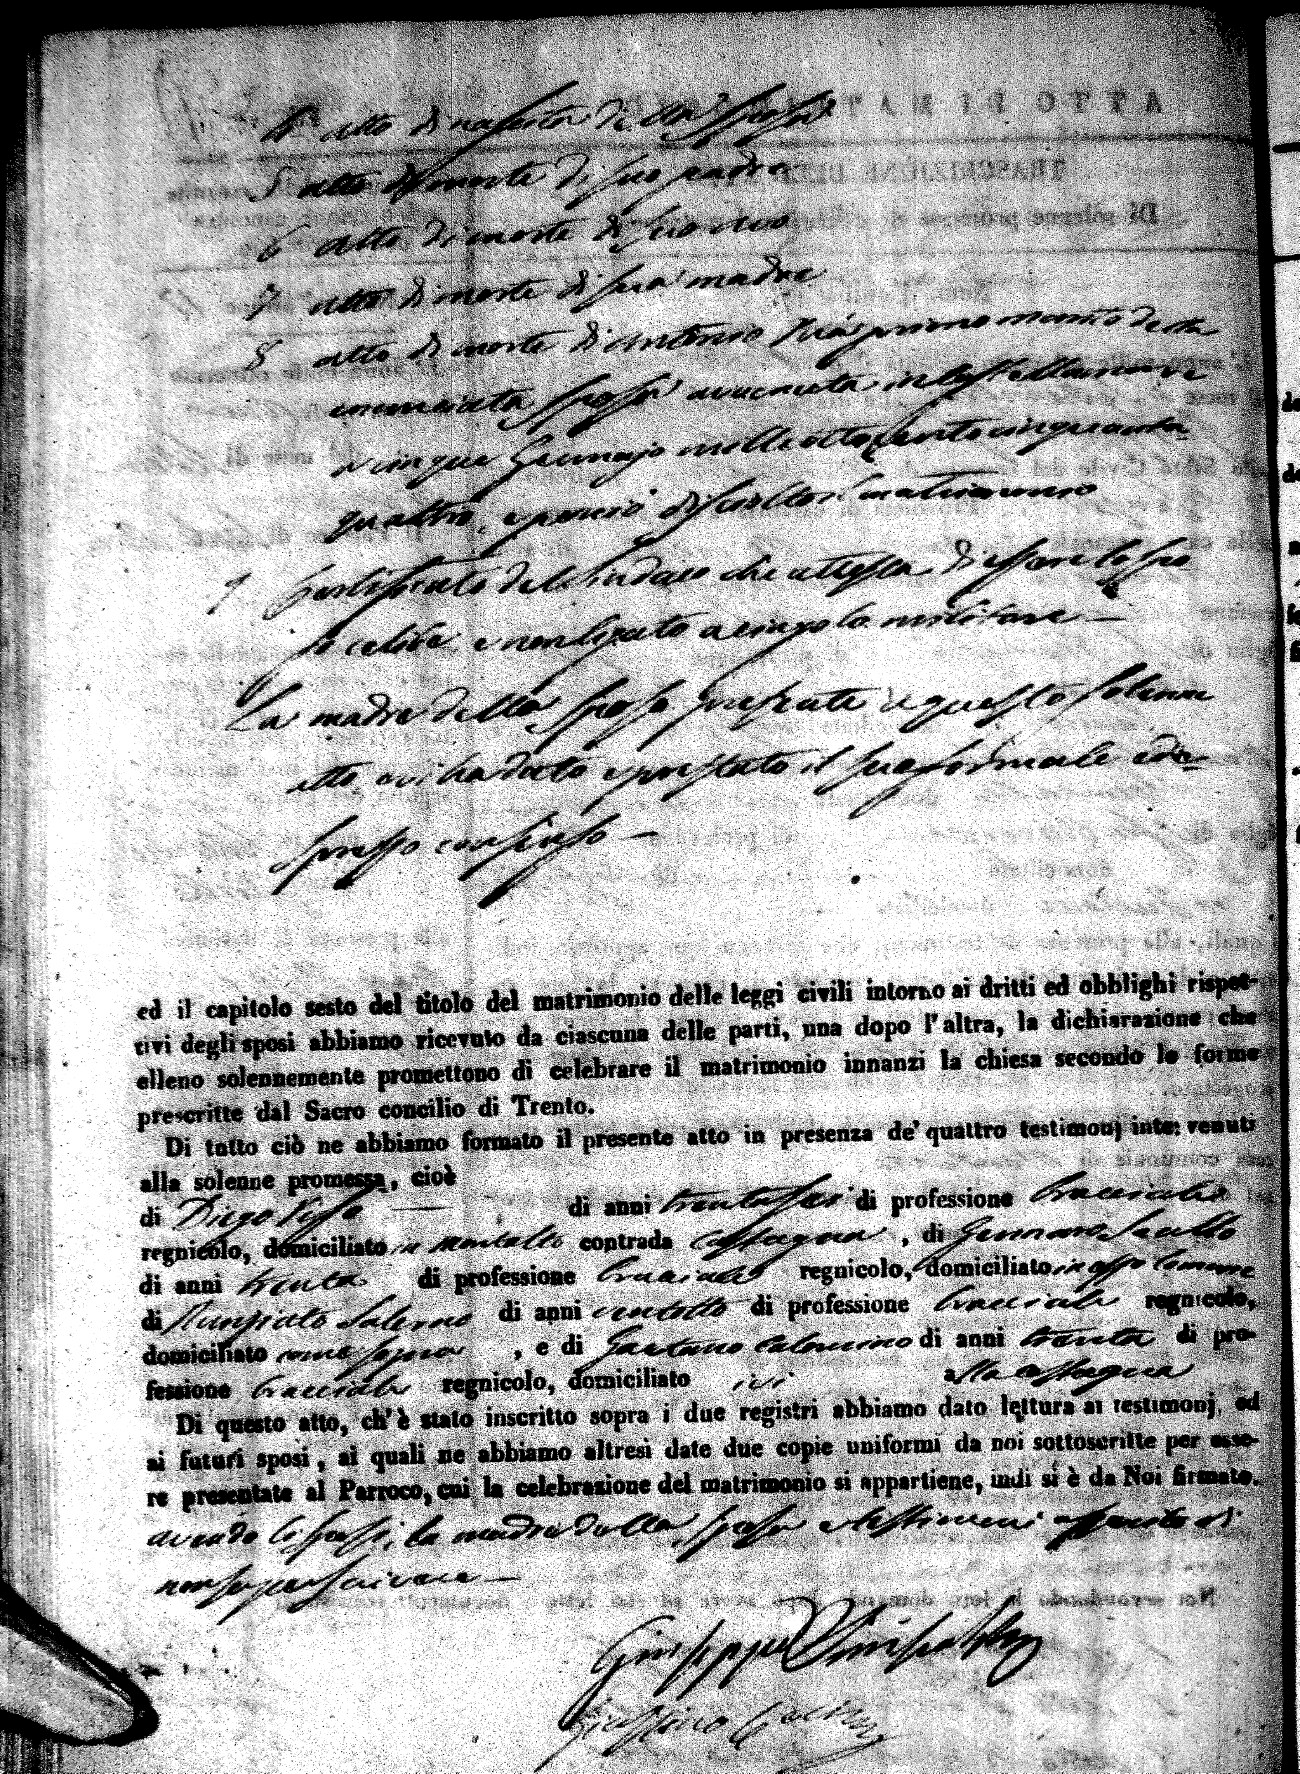 4 atto di nascita di essa sposa
5 atto di morte di suo padre
6 atto di morte di suo avo
7 atto di morte di sua madre
8 atto di morte di Antonio primo marito della
enunciata sposa avvenuta in
a cinque Gennajo mille ottocento cinquanta
quattro, e perciò disciolto il matrimonio
9 Certificato del Sindaco che attesta di essere lo spo
so celibe, e non ligato a cingolo militare —
La madre della sposa presente a questo solenne
atto, vi ha dato e prestato il suo formale ed e-
spresso consenso —
ed il capitolo sesto del titolo del matrimonio delle leggi civili intorno ai dritti ed obblighi rispet-
tivi degli sposi abbiamo ricevuto da ciascuna delle parti, una dopo l'altra, la dichiarazione che
elleno solennemente promettono di celebrare il matrimonio innanzi la chiesa secondo le forme
prescritte dal Sacro concilio di Trento.
Di tutto ciò ne abbiamo formato il presente atto in presenza de' quattro testimonj intervenuti
alla solenne promessa, cioè
di Diego — di anni trentasei di professione bracciale
regnicolo, domiciliato in Montalto contrada Castagna, di Gennaro
di anni trenta di professione bracciale regnicolo, domiciliato in esso Comune
di Nunziato Salerno di anni ventotto di professione bracciale regnicolo,
domiciliato come sopra, e di Gaetano di anni trenta di pro-
fessione bracciale regnicolo, domiciliato ivi alla Castagna
Di questo atto, ch'è stato inscritto sopra i due registri abbiamo dato lettura ai testimonj, ed
ai futuri sposi, ai quali ne abbiamo altresì date due copie uniformi da noi sottoscritte per esse-
re presentate al Parroco, cui la celebrazione del matrimonio si appartiene, indi si è da Noi firmato.
avendo li sposi, la madre della sposa e testimoni asserito di
non saper scrivere —
Giuseppe